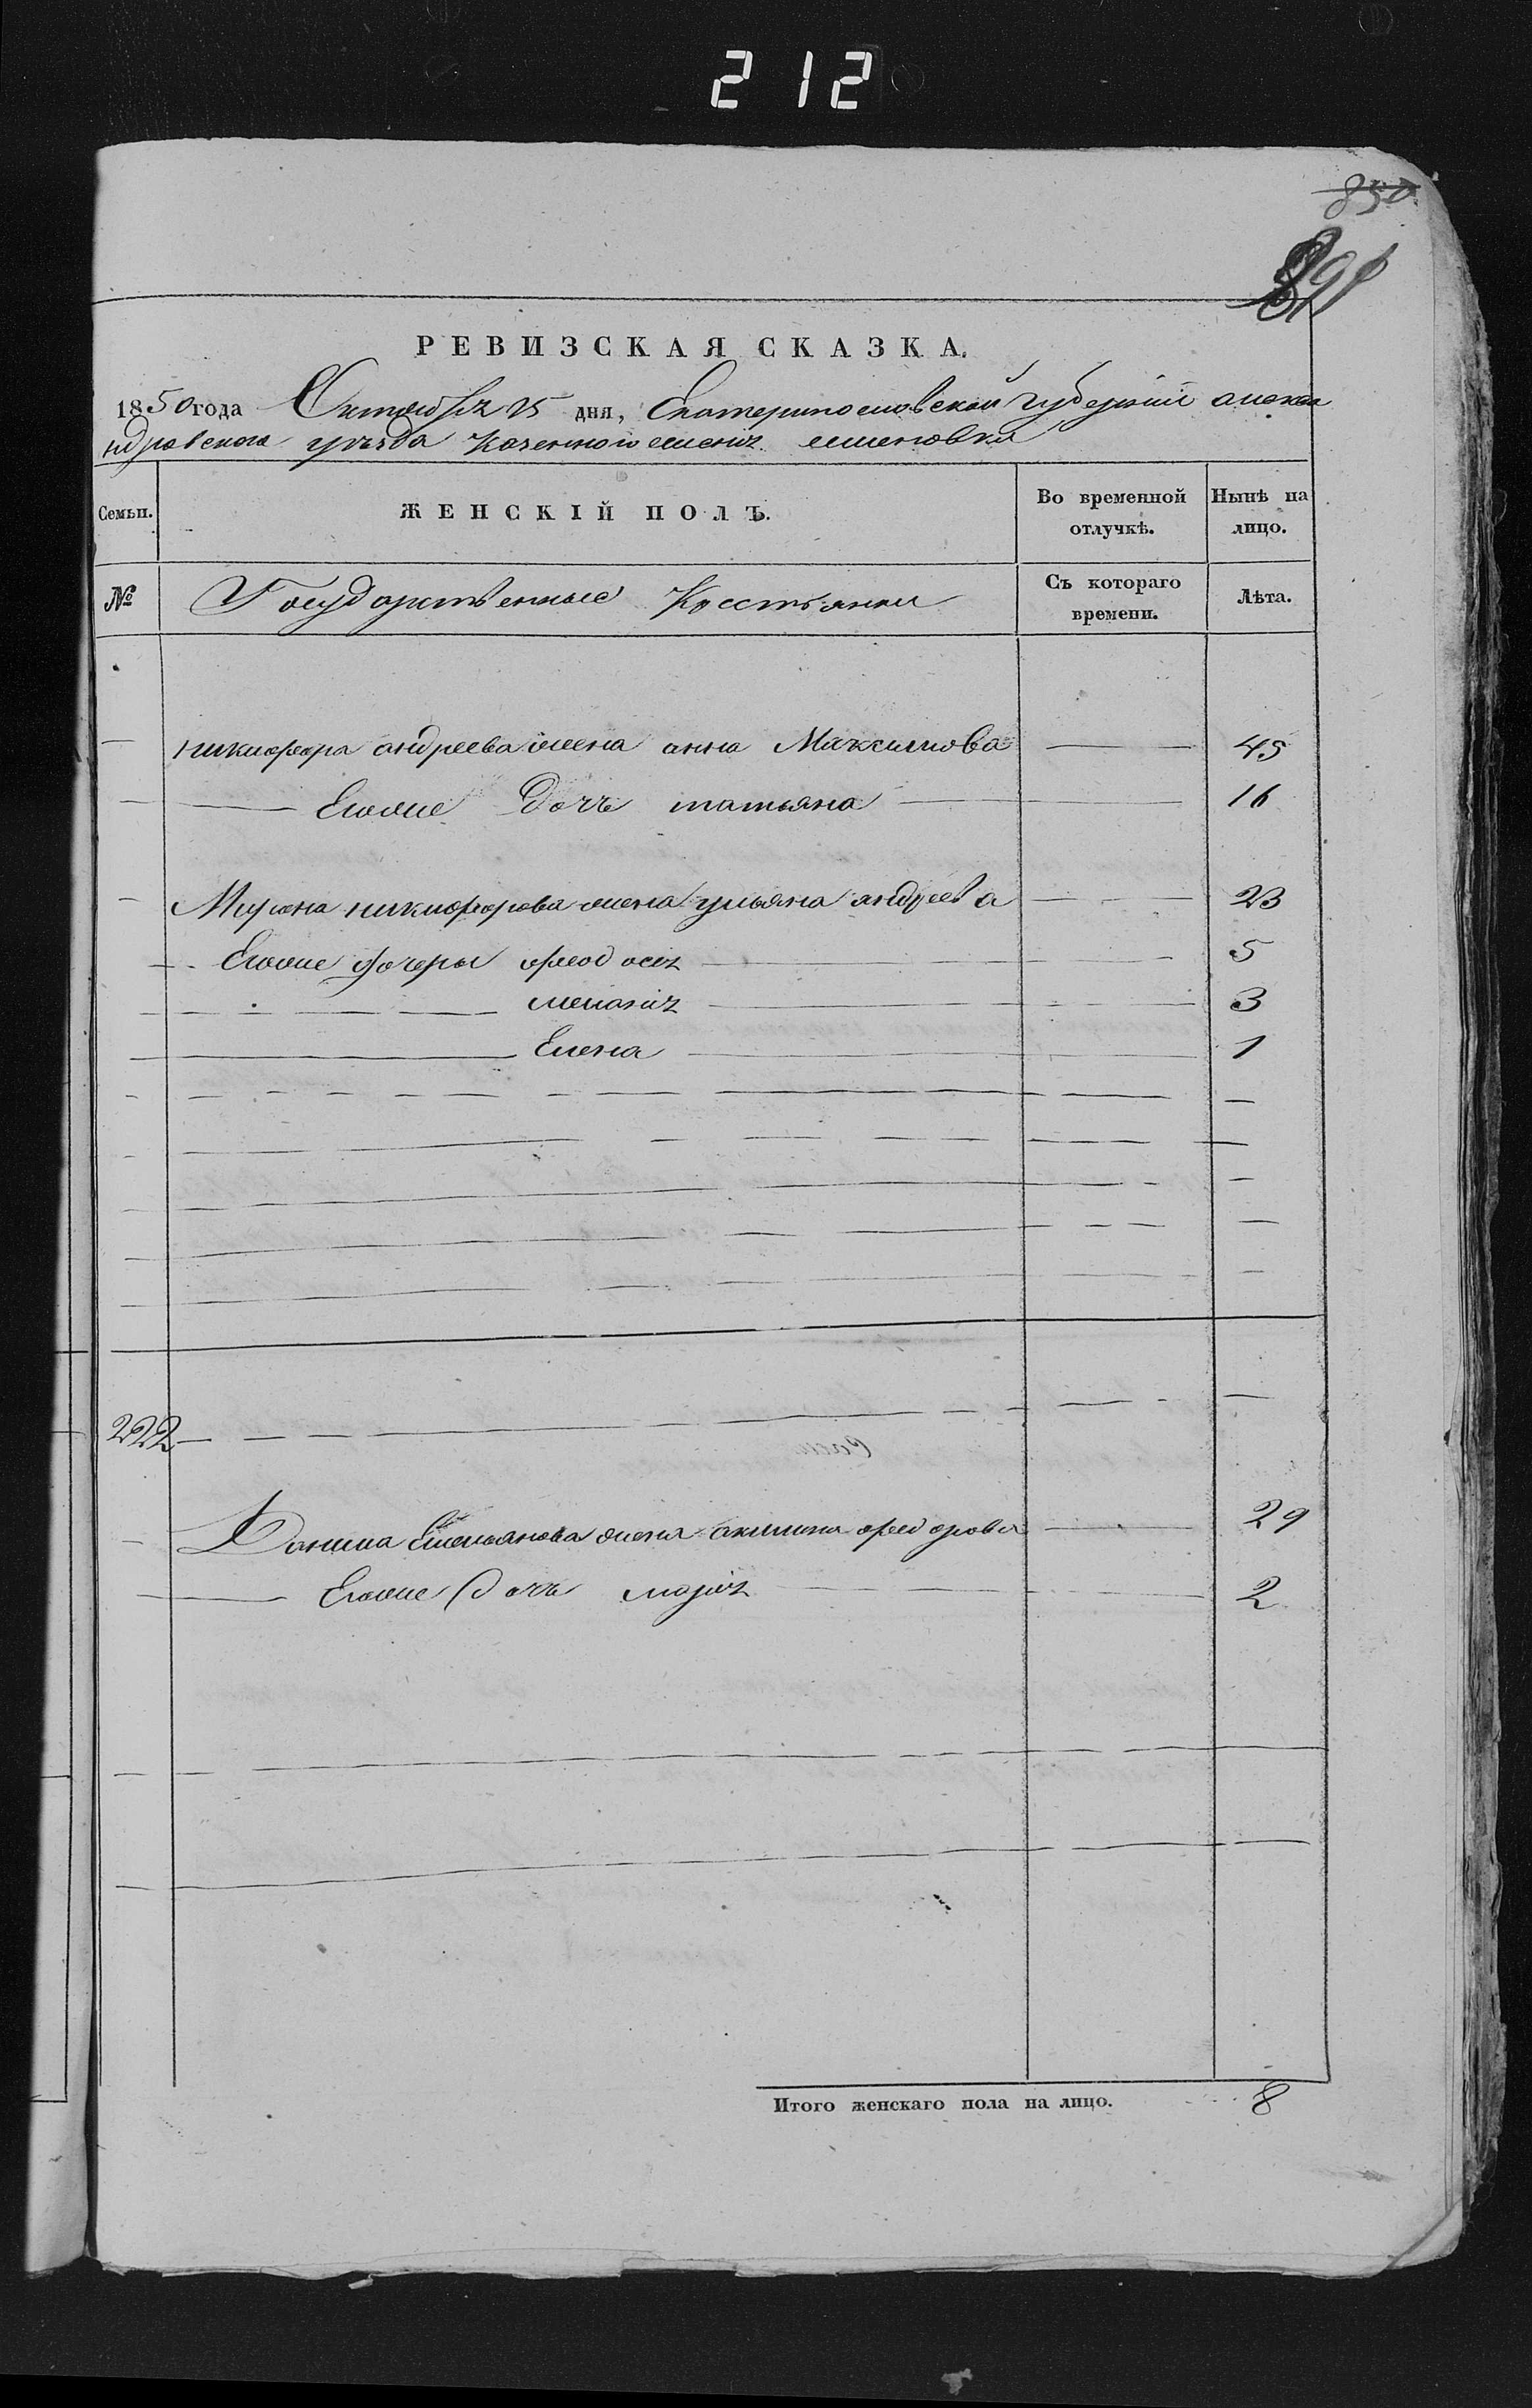 212
850
891
РЕВИЗСКАЯ СКАЗКА.
1850 года Октября 25 дня, Екатеринославской губернии алекса
ндровского уезда Казенного селения
Семьи. ЖЕНСКІЙ ПОЛЪ. Во временной отлучкѣ. Нынѣ на лицо.
№ Государственные Крестьянки Съ котораго времени. Лѣта.
никифора андреева жена анна Максимова 45
Егоже дочь татьяна 16
Мирона никифорова жена ульяна андреева 23
Егоже дочеры феодосія 5
меланія 3
Елена 1
222
Данила Емельянова жена акилина феодорова 29
Егоже дочь марія 2
Итого женскаго пола на лицо. 8